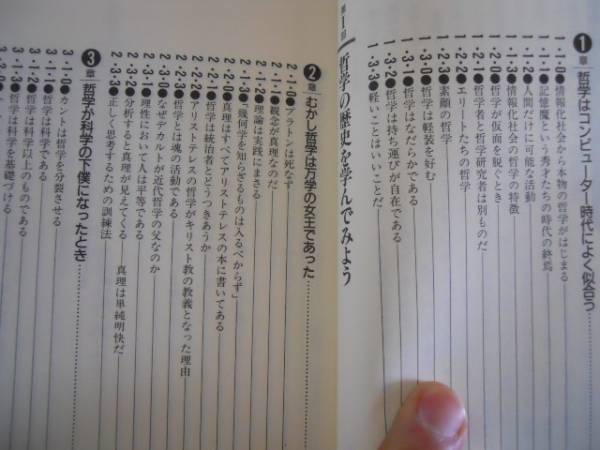 1章 哲学はコンピューター時代によく似合う
1・1・0●情報化社会から本物の哲学がはじまる
1・1・1●記憶魔という秀才たちの時代の終焉
1・1・2●人間だけに可能な活動
1・1・3●情報化社会の哲学の特徴
1・2・0●哲学が仮面を脱ぐとき
1・2・1●哲学者と哲学研究者は別ものだ
1・2・2●エリートたちの哲学
1・2・3●素顔の哲学
1・3・0●哲学は軽装を好む
1・3・1●哲学はなだらかである
1・3・2●哲学は持ち運びが自在である
1・3・3●軽いことはいいことだ
第1回 哲学の歴史を学んでみよう
2章 むかし哲学は万学の女王であった
2・1・0●プラトンは死なず
2・1・1●観念が真理なのだ
2・1・2●理論は実践にまさる
2・1・3●「幾何学を知らざるものは入るべからず」
2・2・0●真理はすべてアリストテレスの本に書いてある
2・2・1●哲学は統治者とどうつきあうか
2・2・2●アリストテレスの哲学がキリスト教の教義となった理由
2・2・3●哲学とは魂の活動である
2・3・0●なぜデカルトが近代哲学の父なのか
2・3・1●理性において人は平等である
2・3・2●分析すると真理が見えてくる 真理は単純明快だ
2・3・3●正しく思考するための訓練法
3章 哲学が科学の下僕になったとき
3・1・0●カントは哲学を分裂させる
3・1・1●哲学は科学である
3・1・2●哲学は科学以上のものである
3・1・3●哲学は科学を基礎づける